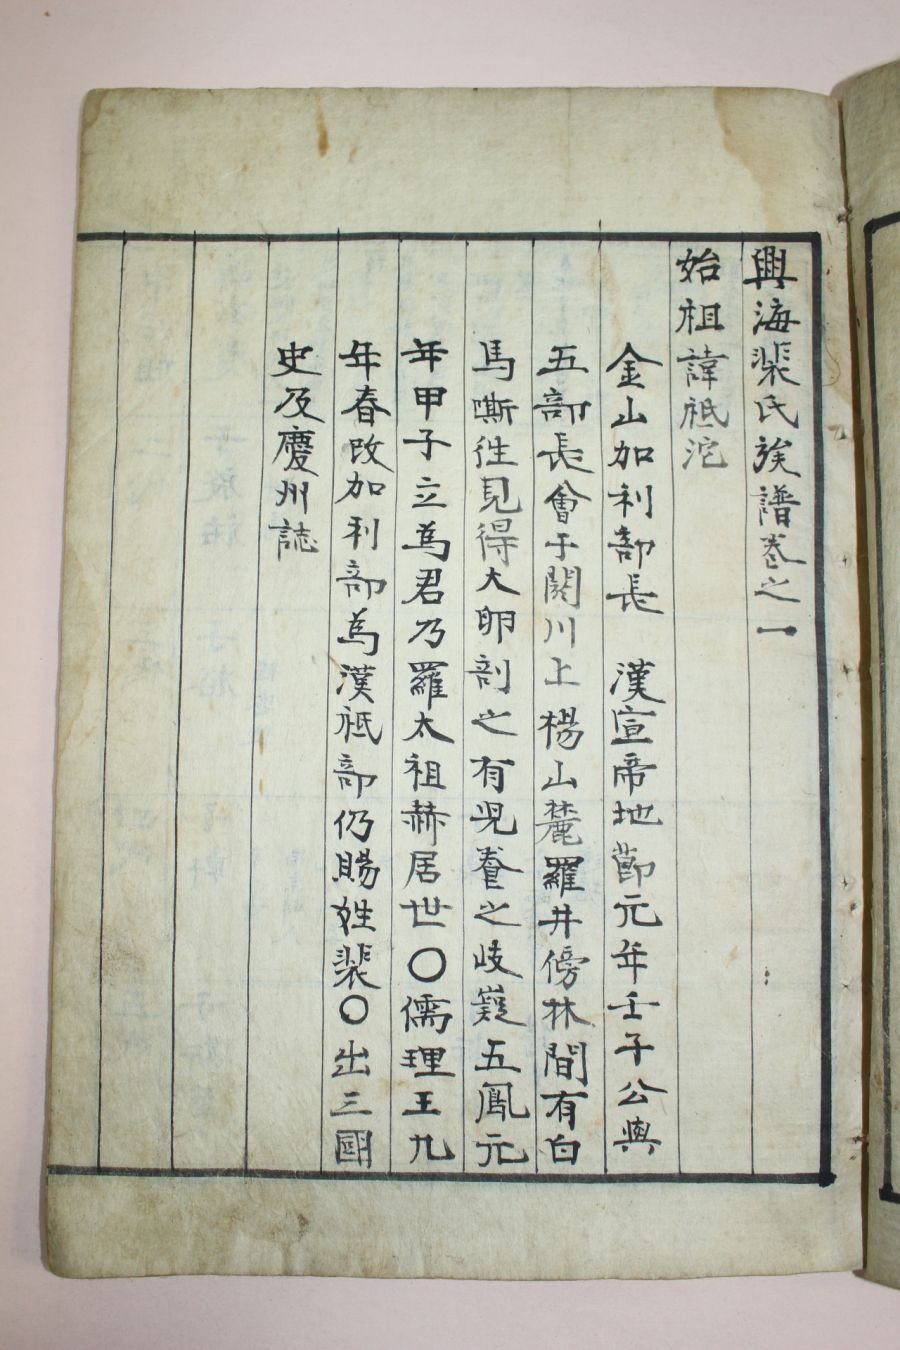 興海裴氏族譜卷之一
始祖諱祗沱
金山加利部長　漢宣帝地節元年壬子公與
五部長會于閼川上楊山麓羅井傍林間有白
馬嘶徃見得大卵剖之有児養之岐嶷五鳳元
年甲子立爲君乃羅太祖赫居世〇儒理王九
年春改加利部爲漢祗部仍賜姓裴〇出三國
史及慶州誌